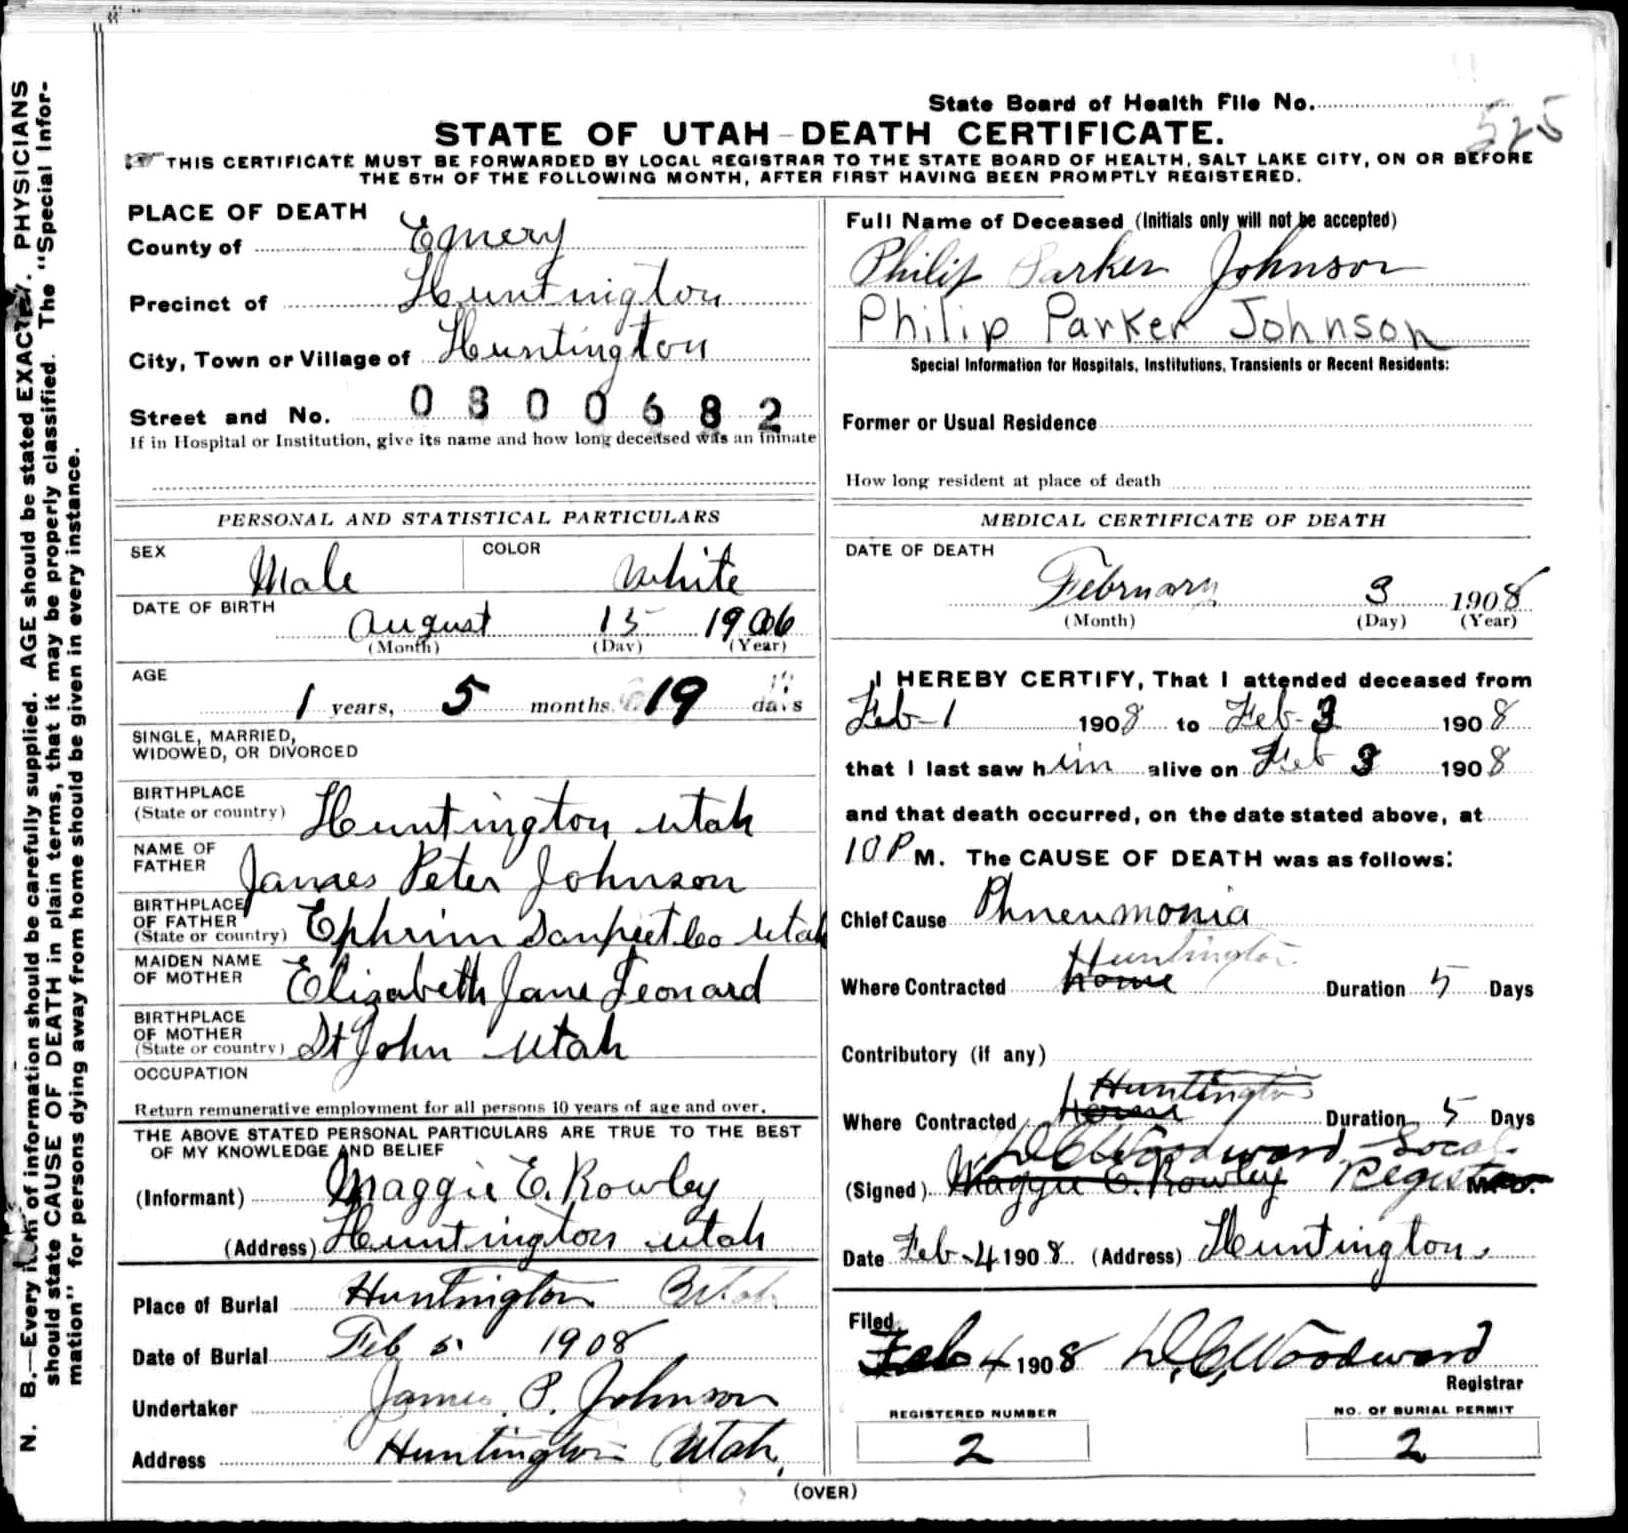 State Board of Health File No. 525
STATE OF UTAH-DEATH CERTIFICATE.
THIS CERTIFICATE MUST BE FORWARDED BY LOCAL REGISTRAR TO THE STATE BOARD OF HEALTH, SALT LAKE CITY, ON OR BEFORE
THE 5TH OF THE FOLLOWING MONTH, AFTER FIRST HAVING BEEN PROMPTLY REGISTERED.
PLACE OF DEATH
County of Emery
Precinct of Huntington
City, Town or Village of Huntington
Street and No. 0800682
If in Hospital or Institution, give its name and how long deceased was an inmate
PERSONAL AND STATISTICAL PARTICULARS
SEX Male COLOR White
DATE OF BIRTH August 15 1906
(Month) (Day) (Year)
AGE 1 years, 5 months 19 days
SINGLE, MARRIED,
WIDOWED, OR DIVORCED
BIRTHPLACE
(State or country) Huntington Utah
NAME OF
FATHER James Peter Johnson
BIRTHPLACE
OF FATHER
(State or country) Ephrim Sanpeet Co Utah
MAIDEN NAME
OF MOTHER Elizabeth Jane Leonard
BIRTHPLACE
OF MOTHER
(State or country) St John Utah
OCCUPATION
Return remunerative employment for all persons 10 years of age and over.
THE ABOVE STATED PERSONAL PARTICULARS ARE TRUE TO THE BEST
OF MY KNOWLEDGE AND BELIEF
(Informant) Maggie E. Rowley
(Address) Huntington Utah
Place of Burial Huntington Utah
Date of Burial Feb 5 1908
Undertaker James P. Johnson
Address Huntington Utah.
Full Name of Deceased (Initials only will not be accepted)
Philip Parker Johnson
Philip Parker Johnson
Special Information for Hospitals, Institutions, Transients or Recent Residents:
Former or Usual Residence
How long resident at place of death
MEDICAL CERTIFICATE OF DEATH
DATE OF DEATH
February 3 1908
(Month) (Day) (Year)
I HEREBY CERTIFY, That I attended deceased from
Feb-1 1908 to Feb-3 1908
that I last saw him alive on Feb 3 1908
and that death occurred, on the date stated above, at
10 P M. The CAUSE OF DEATH was as follows:
Chief Cause Phneumonia
Huntington
Where Contracted home Duration 5 Days
Contributory (if any)
Huntington
Where Contracted Home Duration 5 Days
D.C. Woodward Local
(Signed) Maggie E. Rowley Registrar M. D.
Date Feb-4 1908 (Address) Huntington.
Filed
Feb 4 1908 D.C. Woodward
Registrar
REGISTERED NUMBER
2
NO. OF BURIAL PERMIT
2
(OVER)
N. B.—Every item of information should be carefully supplied. AGE should be stated EXACTLY. PHYSICIANS
should state CAUSE OF DEATH in plain terms, that it may be properly classified. The "Special Infor-
mation" for persons dying away from home should be given in every instance.